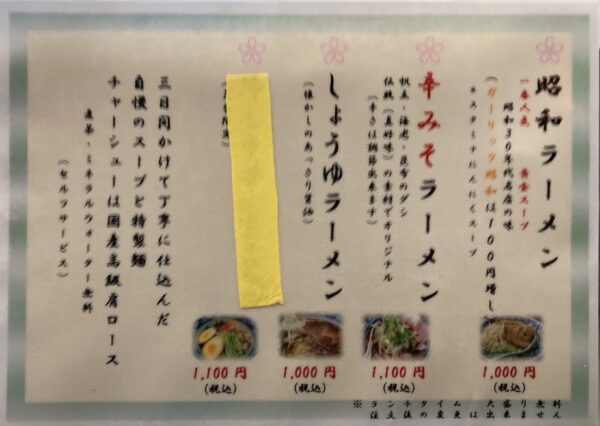 昭和ラーメン
一番人気　黄金スープ
昭和30年代名店の味
(ガーリック昭和は100円増し
※スタミナにんにくスープ
1,000 円
(税込)
辛みそラーメン
帆立・海老・昆布のダシ
伝統(真好味)の素材でオリジナル
(辛さは調節出来ます)
1,100 円
(税込)
しょうゆラーメン
(懐かしのあっさり醤油)
1,000 円
(税込)
1,100 円
(税込)
三日間かけて丁寧に仕込んだ
自慢のスープと特製麺
チャーシューは国産高級肩ロース
麦茶・ミネラルウォーター無料
(セルフサービス)